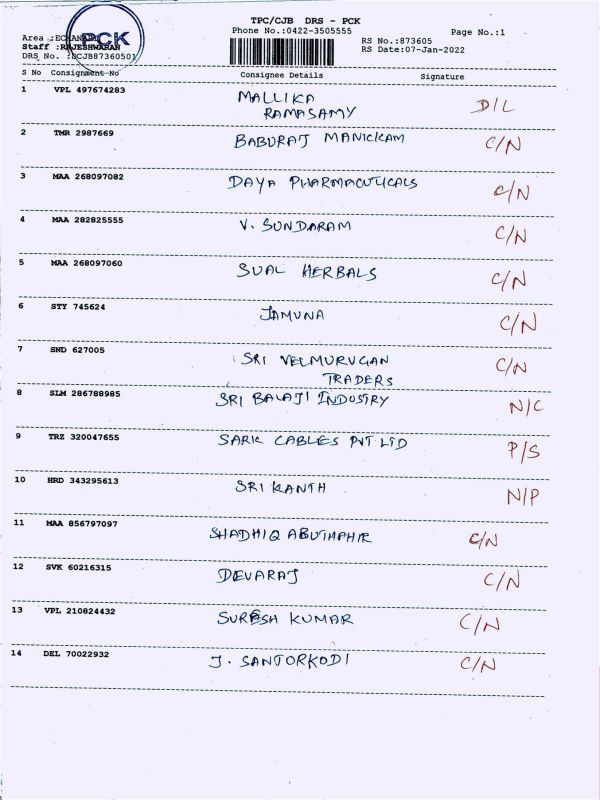 TPC/CJB DRS - PCK
Phone No.:0422-3505555 Page No.:1
Area : RS No.:873605
Staff :RAJESHWARAN RS Date:07-Jan-2022
DRS No. :
PCK
S No Consignment No Consignee Details Signature
1 VPL 497674283 MALLIKA D/L
RAMASAMY
2 TMR 2987669 BABURAJ MANICKAM C/N
3 MAA 268097082 DAYA PHARMACUTICALS C/N
4 MAA 282825555 V. SUNDARAM C/N
5 MAA 268097060 SUAL HERBALS C/N
6 STY 745624 JAMUNA C/N
7 SND 627005 SRI VELMURUGAN C/N
TRADERS
8 SLM 286788985 SRI BALAJI INDUSTRY N/C
9 TRZ 320047655 SARK CABLES PVT LTD P/S
10 HRD 343295613 SRIKANTH N/P
11 MAA 856797097 SHADHIQ ABUTHAHIR C/N
12 SVK 60216315 DEVARAJ C/N
13 VPL 210824432 SURESH KUMAR C/N
14 DEL 70022932 J. SANTORKODI C/N